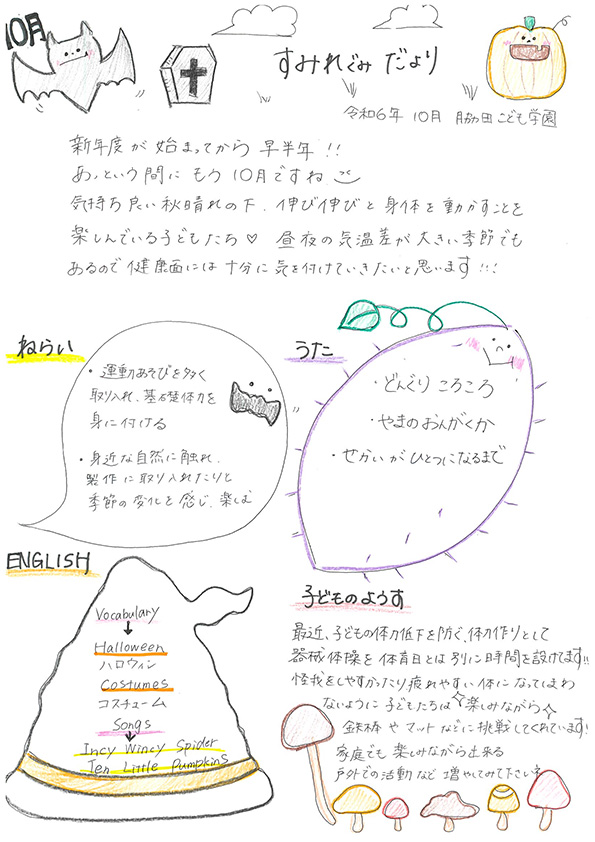 10月
すみれぐみ だより
令和6年 10月 脇田こども学園
新年度が 始まってから 早半年!!
あっという間に もう 10月ですね
気持ち良い秋晴れの下、伸び伸びと 身体を動かすことを
楽しんでいる子どもたち♡ 昼夜の気温差が大きい季節でも
あるので 健康面には 十分に 気を付けていきたいと思います!!!
ねらい
・運動あそびを多く
取り入れ、基礎体力を
身に付ける
・身近な自然に触れ、
製作に取り入れたりと
季節の変化を感じ、楽しむ
うた
・どんぐり ころころ
・やまのおんがくか
・せかいがひとつになるまで
ENGLISH
Vocabulary
↓
Halloween
ハロウィン
Costumes
コスチューム
Songs
↓
Incy Wincy Spider
Ten Little Pumpkins
子どものようす
最近、子どもの体力低下を防ぐ、体力作りとして
器械体操を体育日とは別に時間を設けてます!!
怪我をしやすかったり疲れやすい体になってしまわ
ないように 子どもたちは 楽しみながら
鉄棒 や マットなどに挑戦してくれています!
家庭でも 楽しみながら出来る
戸外での活動など 増やしてみて下さいネ